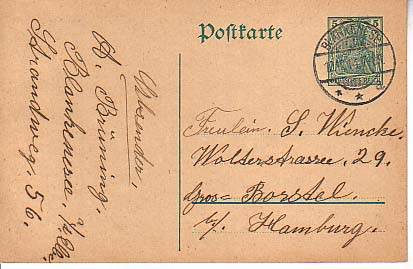 Postkarte
5 5
BLANKENESE
Absender,
H. Brüning,
Blankenese, a/Elbe.
Strandweg, 56.
Freulein. S. Wiencke.
Wolterstrasse, 29.
Gros= Borstel.
b/ Hamburg.